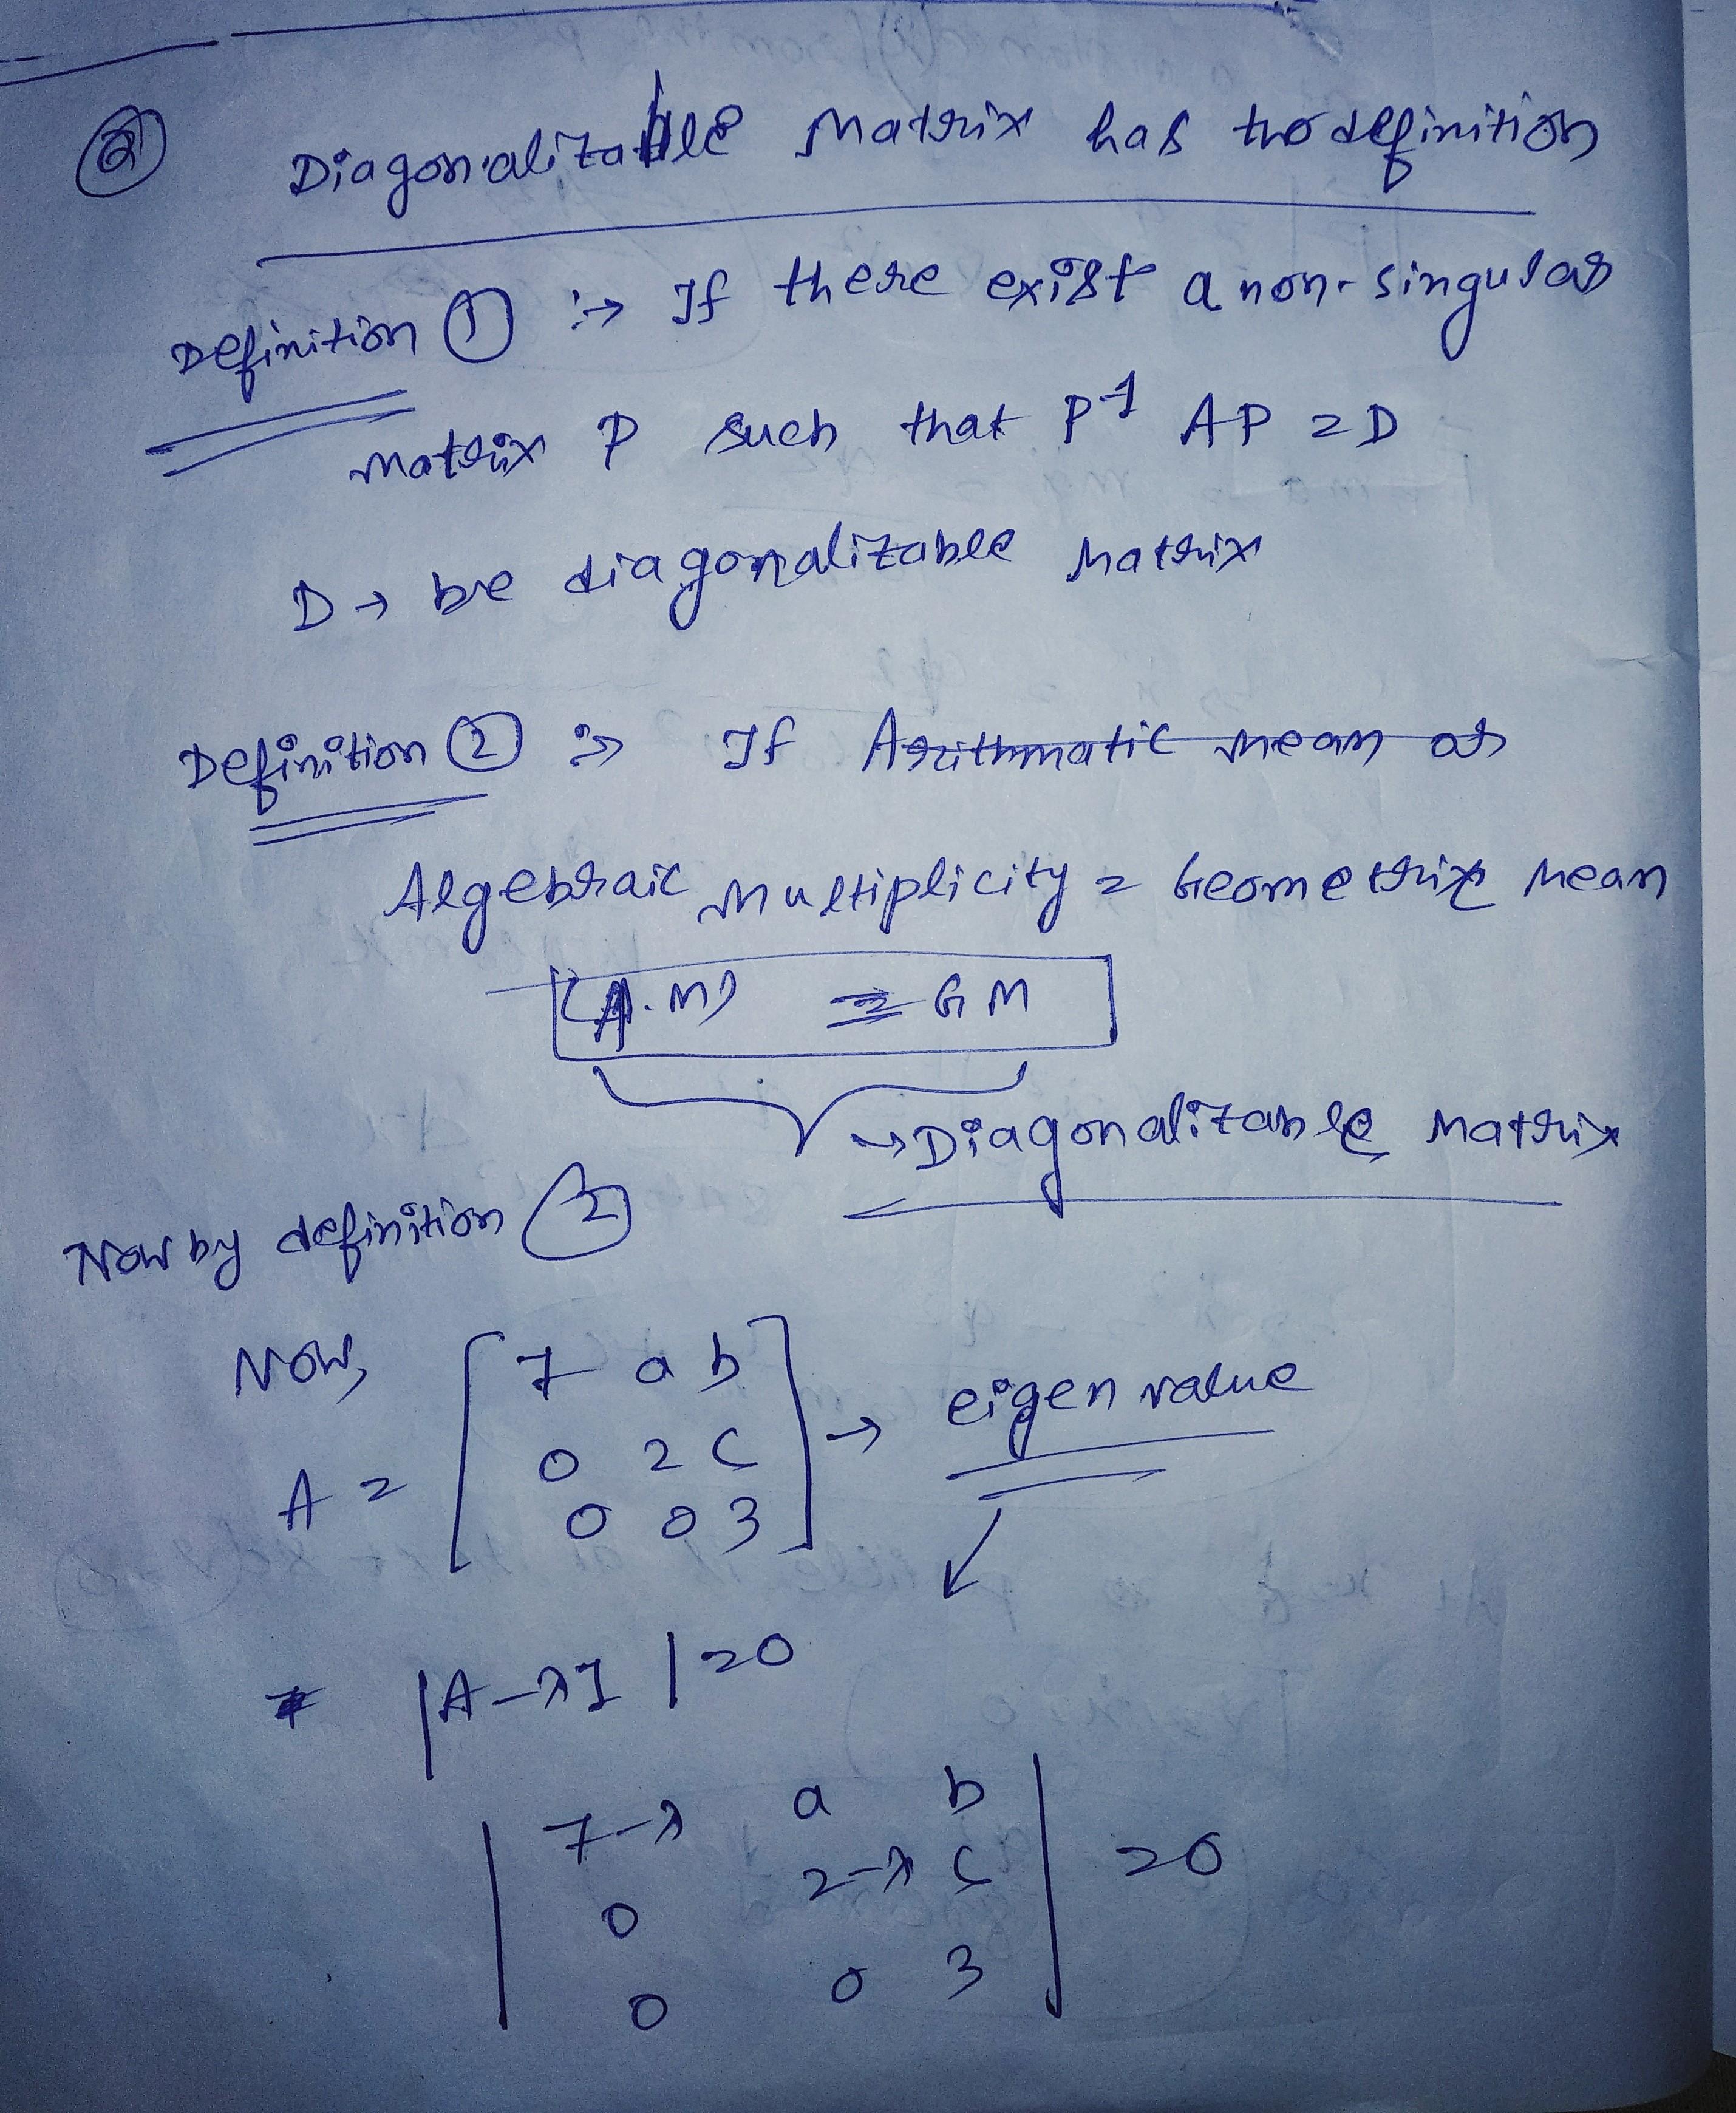 ② Diagonalizable Matrix has two definition
Definition ① :→ If there exist a non-singular
matrix P such that P⁻¹ AP = D
D → be diagonalizable Matrix
Definition ② :→ If Arithmatic mean or
Algebraic Multiplicity = Geometrix Mean
(A.M) = GM
→ Diagonalizable Matrix
Now by definition ②
Now,
A = [7 a b
0 2 c
0 0 3] → eigen value
* |A-λI| = 0
|7-λ a b
0 2-λ c
0 0 3| = 0